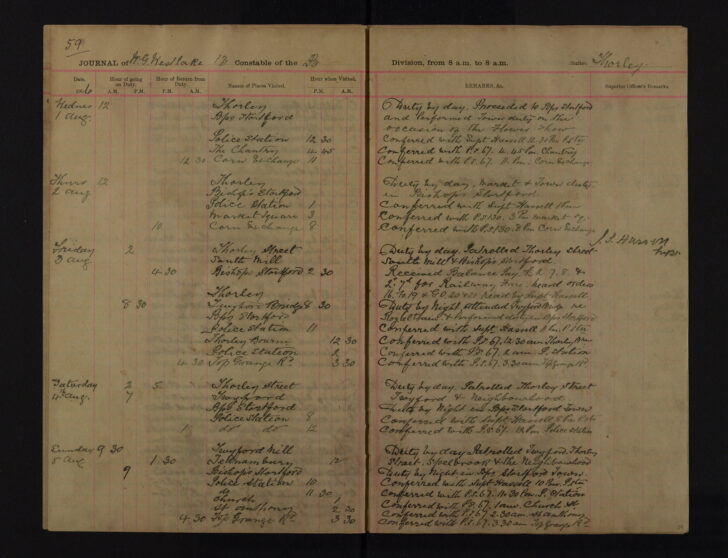 59
JOURNAL of W. G. Westlake 18 Constable of the
Division, from 8 a.m. to 8 a.m. Station Thorley
Date. Hour of going on Duty. Hour of Return from Duty. Names of Places Visited. Hour when Visited. REMARKS, &c. Superior Officer's Remarks.
1906 A.M. P.M. P.M. A.M. P.M. A.M.
Wednes 12 Thorley Duty by day. Proceeded to Bps Stortford
1 Aug. Bps Stortford and Performed Town duty on the
occasion of the Flower Show
Police Station 12 30 Conferred with Supt Hassell 12.30 Pm P. Stn
The Chantry 4.45 Conferred with P.S. 67. 4.45 Pm. Chantry
12 30 Corn Exchange 11 Conferred with P.S. 67. 11. Pm. Corn Exchange
Thurs 12 Thorley Duty by day. Market & Town duty
2 Aug Bishop's Stortford in Bishops Stortford.
Police Station 1 Conferred with Supt Hassell 1 Pm
Market Square 3 Conferred with P.S. 130. 3 Pm Market Sq.
10 Corn Exchange 8 Conferred with P.S. 130. 8 Pm. Corn Exchange
Friday 2 Thorley Street Duty by day. Patrolled Thorley Street
3 Aug South Mill South Mill & Bishop's Stortford.
4.30 Bishops Stortford 2 30 Received Balance Pay
for Railway heard orders
Thorley read by Supt Hassell
8 30 Twyford Bridge 8 30 Duty by Night attended Twyford Bridge re
Bps Stortford & Performed duty in Bps Stortford
Police Station 11 Conferred with Supt Hassell 11 Pm. P. Stn
Thorley Bourne 12 30 Conferred with P.S. 67. 12.30 am Thorley
Police Station 1 Conferred with P.S. 67. 1 am P. Station
4.30 Top Grange Rd. 3 30 Conferred with P.S. 67. 3.30 am Top Grange Rd.
Saturday 2 5 Thorley Street Duty by day. Patrolled Thorley Street
4th Aug. 7 Twyford Twyford & Neighbourhood
Bps Stortford Duty by Night in Bps Stortford Town
Police Station 8 Conferred with Supt Hassell 8 Pm P. Stn
1 do do 12 Conferred with P.S. 67. 12. Pm. Police Station
Sunday 9 30 Twyford Mill Duty by day Patrolled Twyford Thorley
5 Aug 1 30 12 Street, Spelbrook & the Neighbourhood
9 Bishop's Stortford Duty by Night in Bps Stortford Town.
Police Station 10 Conferred with Supt Hassell 10 Pm. P. Stn
do 11 30 Conferred with P.S. 67. 11.30 Pm P. Station
Church 1 Conferred with P.S. 67. 1 am. Church St
St Anthony 2 30 Conferred with P.S. 67 2.30 am St Anthony
4.30 Top Grange Rd. 3 30 Conferred with P.S. 67. 3.30 am Top Grange Rd.